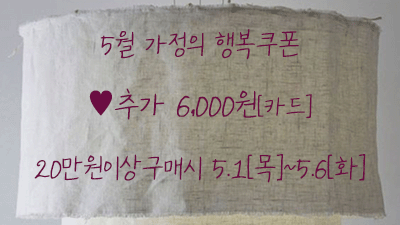 5월 가정의 행복쿠폰
♥추가 6,000원[카드]
20만원이상구매시 5.1[목]~5.6[화]